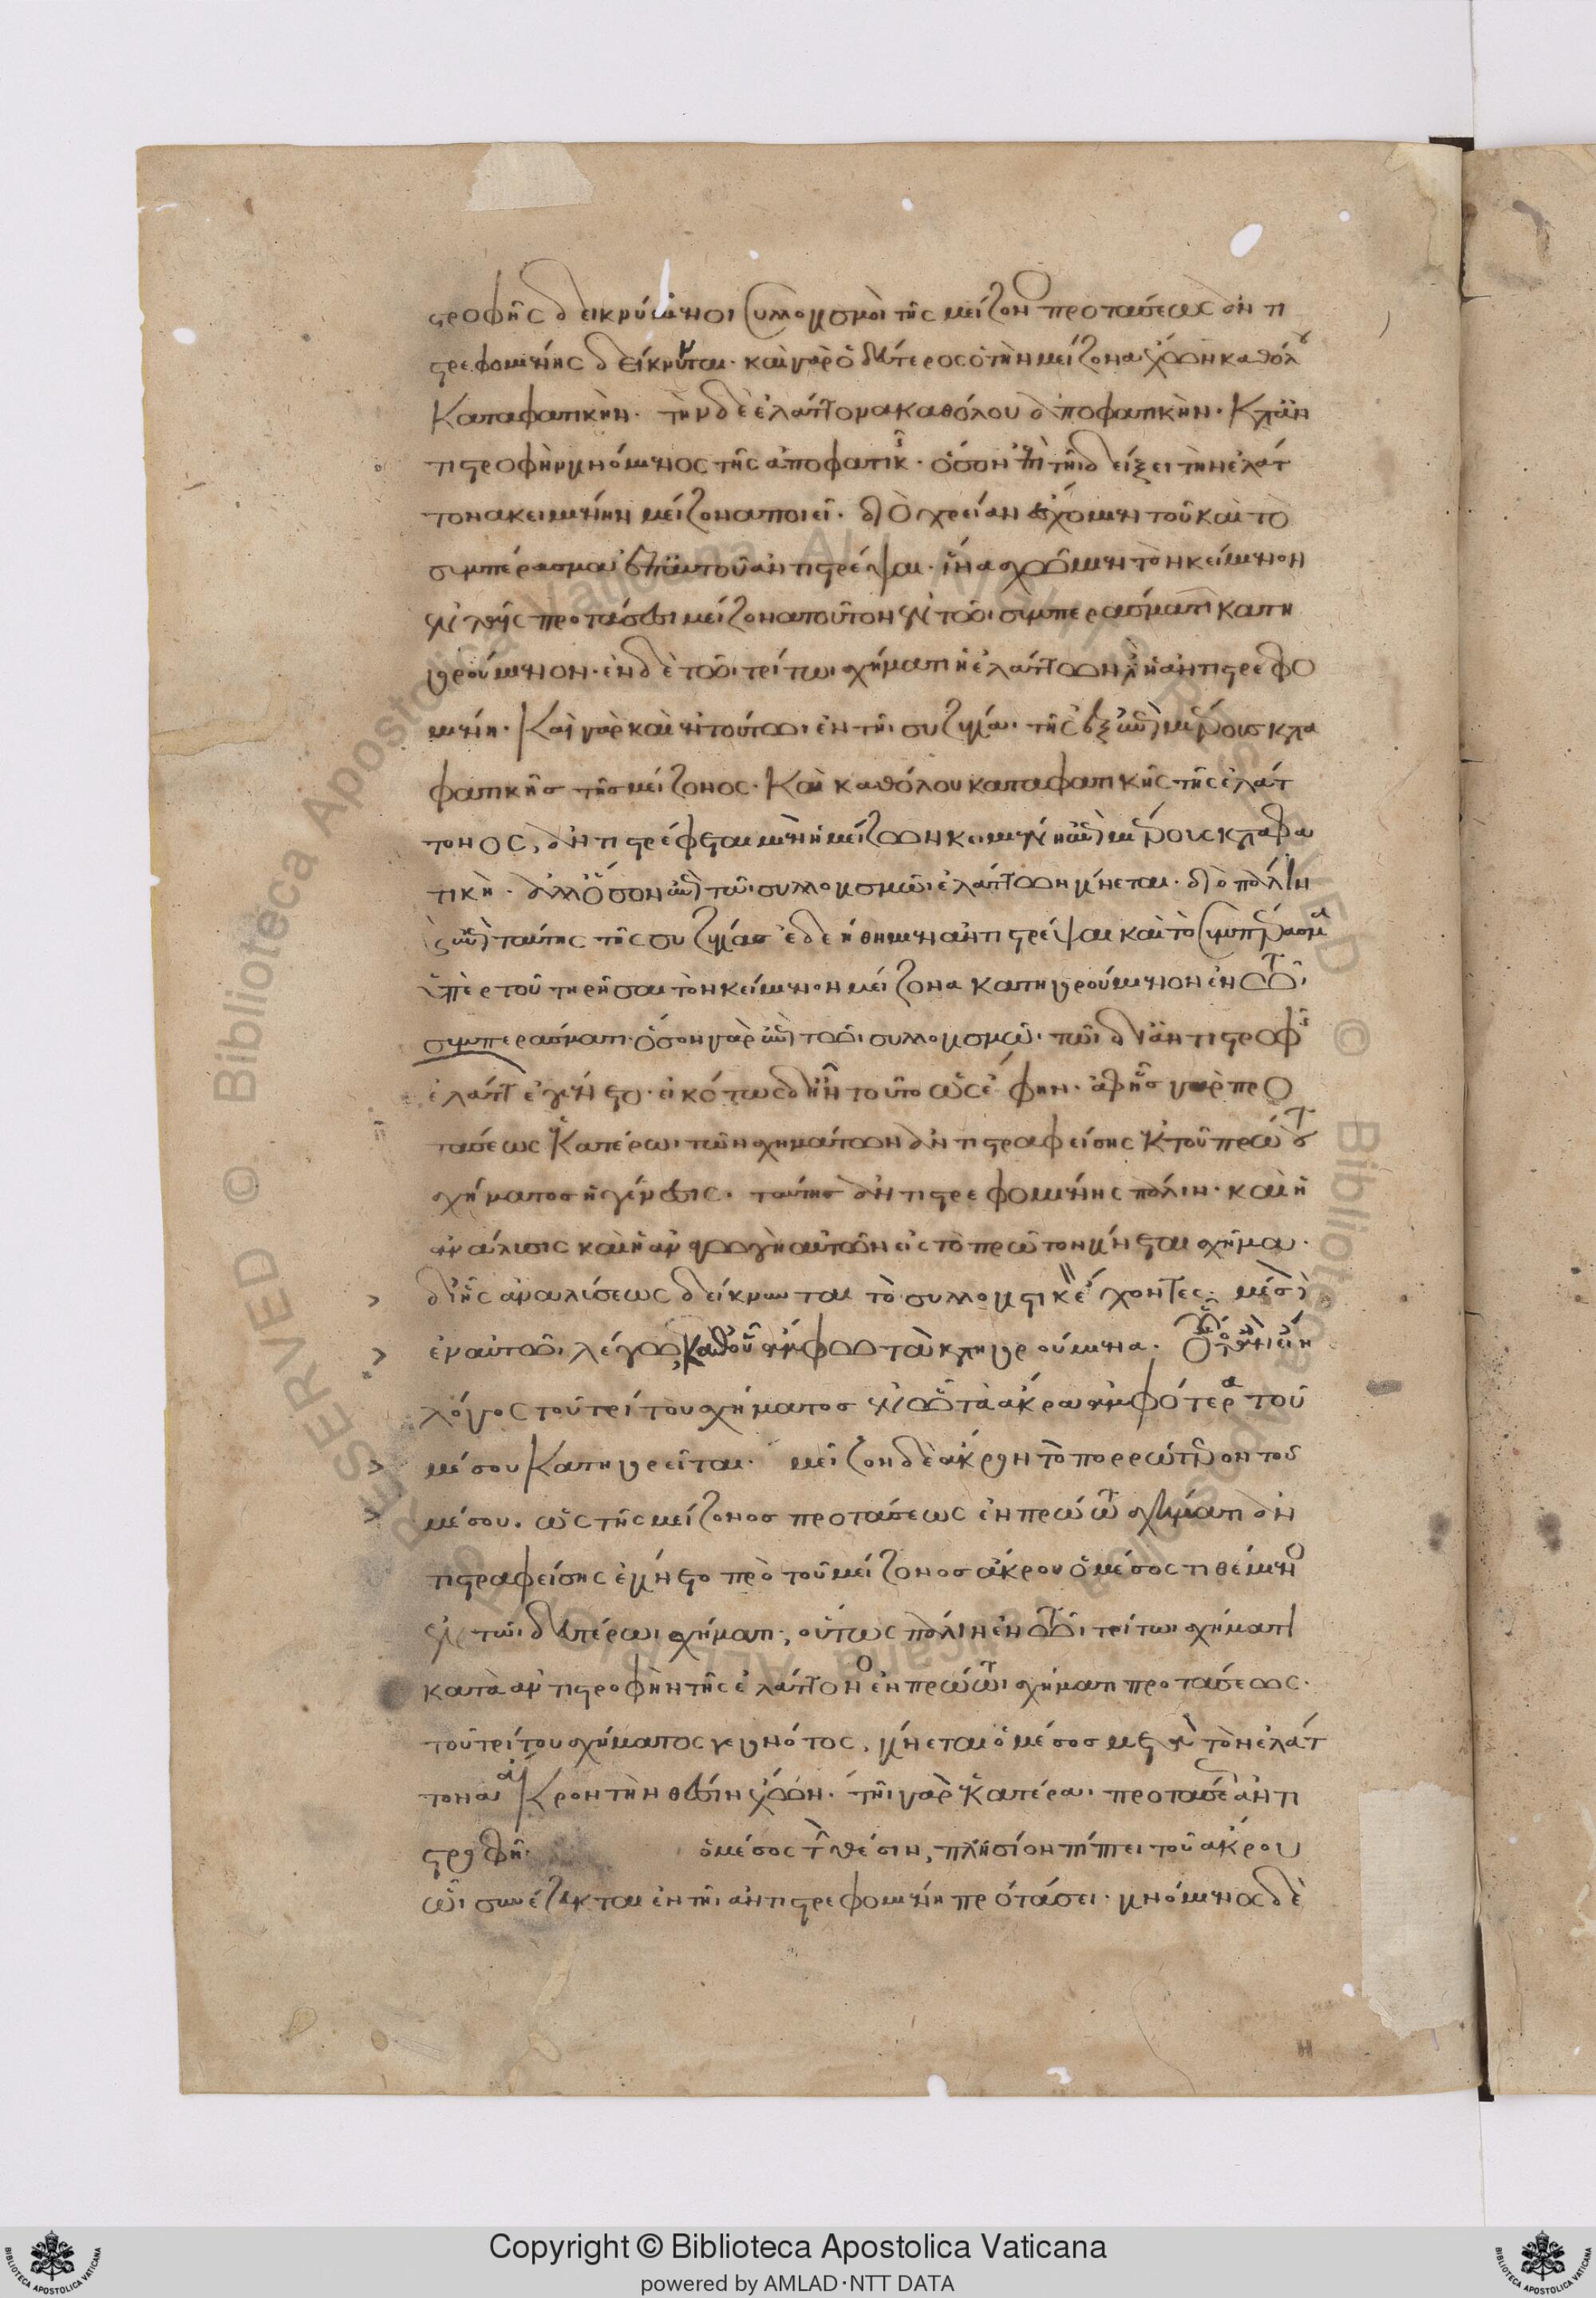 στροφῆς δεικνύμενοι συλλογισμοὶ τῆς μείζονος προτάσεως ἀντι
στρεφομένης δείκνυται· καὶ γὰρ ὁ δεύτερος ὁ τὴν μείζονα ἔχων καθόλου
καταφατικὴν· τὴν δὲ ἐλάττονα καθόλου ἀποφατικὴν· κατὰ ἀν
τιστροφὴν γινόμενος τῆς ἀποφατικῆς· ὅσον ἐπὶ τῆι δείξει τὴν ἐλάτ
τονα κειμένην μείζονα ποιεῖ· διὸ χρείαν ἔχομεν τοῦ καὶ τὸ
συμπέρασμα ἐπ' αὐτοῦ ἀντιστρέψαι· ἵνα σχῶμεν τὸν κείμενον
ἐν ταῖς προτάσεσι μείζονα τοῦτον ἐν τῶι συμπεράσματι κατη
γορούμενον· ἐν δὲ τῶι τρίτωι σχήματι ἡ ἐλάττων ἦν ἡ ἀντιστρεφο
μένη· καὶ γὰρ καὶ ἐν τούτωι ἐν τῆι συζυγίαι τῆς ἐξ ἐπὶ μέρους κατα
φατικῆς τῆς μείζονος· καὶ καθόλου καταφατικῆς τῆς ἐλάτ
τονος, ἀντιστρέφεται μὲν ἡ μείζων κειμένη ἐπὶ μέρους καταφα
τικὴ· ἀλλ' ὅσον ἐπὶ τῶι συλλογισμῶι ἐλάττων γίνεται· διὸ πάλιν
ἐπὶ ταύτης τῆς συζυγίας ἐδεήθημεν ἀντιστρέψαι καὶ τὸ συμπέρασμα
ὑπὲρ τοῦ τηρῆσαι τὸν κείμενον μείζονα κατηγορούμενον ἐν τῶι
συμπεράσματι· ὅσον γὰρ ἐπὶ τῶι συλλογισμῶι τῶι δι' ἀντιστροφῆς
ἐλάττων ἐγένετο· εἰκότως δὴ τοῦτο ὡς ἔφην· ἀφ' ἧς γὰρ προ
τάσεως ἑκατέρωι τῶν σχημάτων ἀντιστραφείσης ἐκ τοῦ πρώτου
σχήματος ἡ γένεσις· ταύτης ἀντιστρεφομένης πάλιν· καὶ ἡ
ἀνάλυσις καὶ ἡ ἀναγωγὴ αὐτῶν εἰς τὸ πρῶτον γίνεται σχῆμα·
δι' ἧς ἀναλύσεως δείκνυνται τὸ συλλογιστικὸν ἔχοντες· μέσον
ἐν αὐτῶι λέγω καθ' οὗ ἄμφω τὰ κατηγορούμενα·
λόγος τοῦ τρίτου σχήματος ἐν ὧι τὰ ἄκρα ἀμφότερα τοῦ
μέσου κατηγορεῖται· μεῖζον δὲ ἄκρον τὸ πορρώτερον τοῦ
μέσου· ὡς τῆς μείζονος προτάσεως ἐν πρώτωι σχήματι ἀν
τιστραφείσης ἐγίνετο πρὸ τοῦ μείζονος ἄκρου ὁ μέσος τιθέμενος
ἐν τῶι δευτέρωι σχήματι, οὕτως πάλιν ἐν τῶι τρίτωι σχήματι
κατὰ ἀντιστροφὴν τῆς ἐλάττονος ἐν πρώτωι σχήματι προτάσεως·
τοῦ τρίτου σχήματος γεγονότος, γίνεται ὁ μέσος μετὰ τὸν ἐλάτ
τονα ἄκρον τὴν θέσιν ἔχων· τῆι γὰρ ἑκατέραι προτάσει ἀντι
στροφῆι ὁ μέσος τὴν θέσιν, πλησίον πίπτει τοῦ ἄκρου
ὧι συνέζευκται ἐν τῆι ἀντιστρεφομένηι προτάσει· γινόμενος δὲ